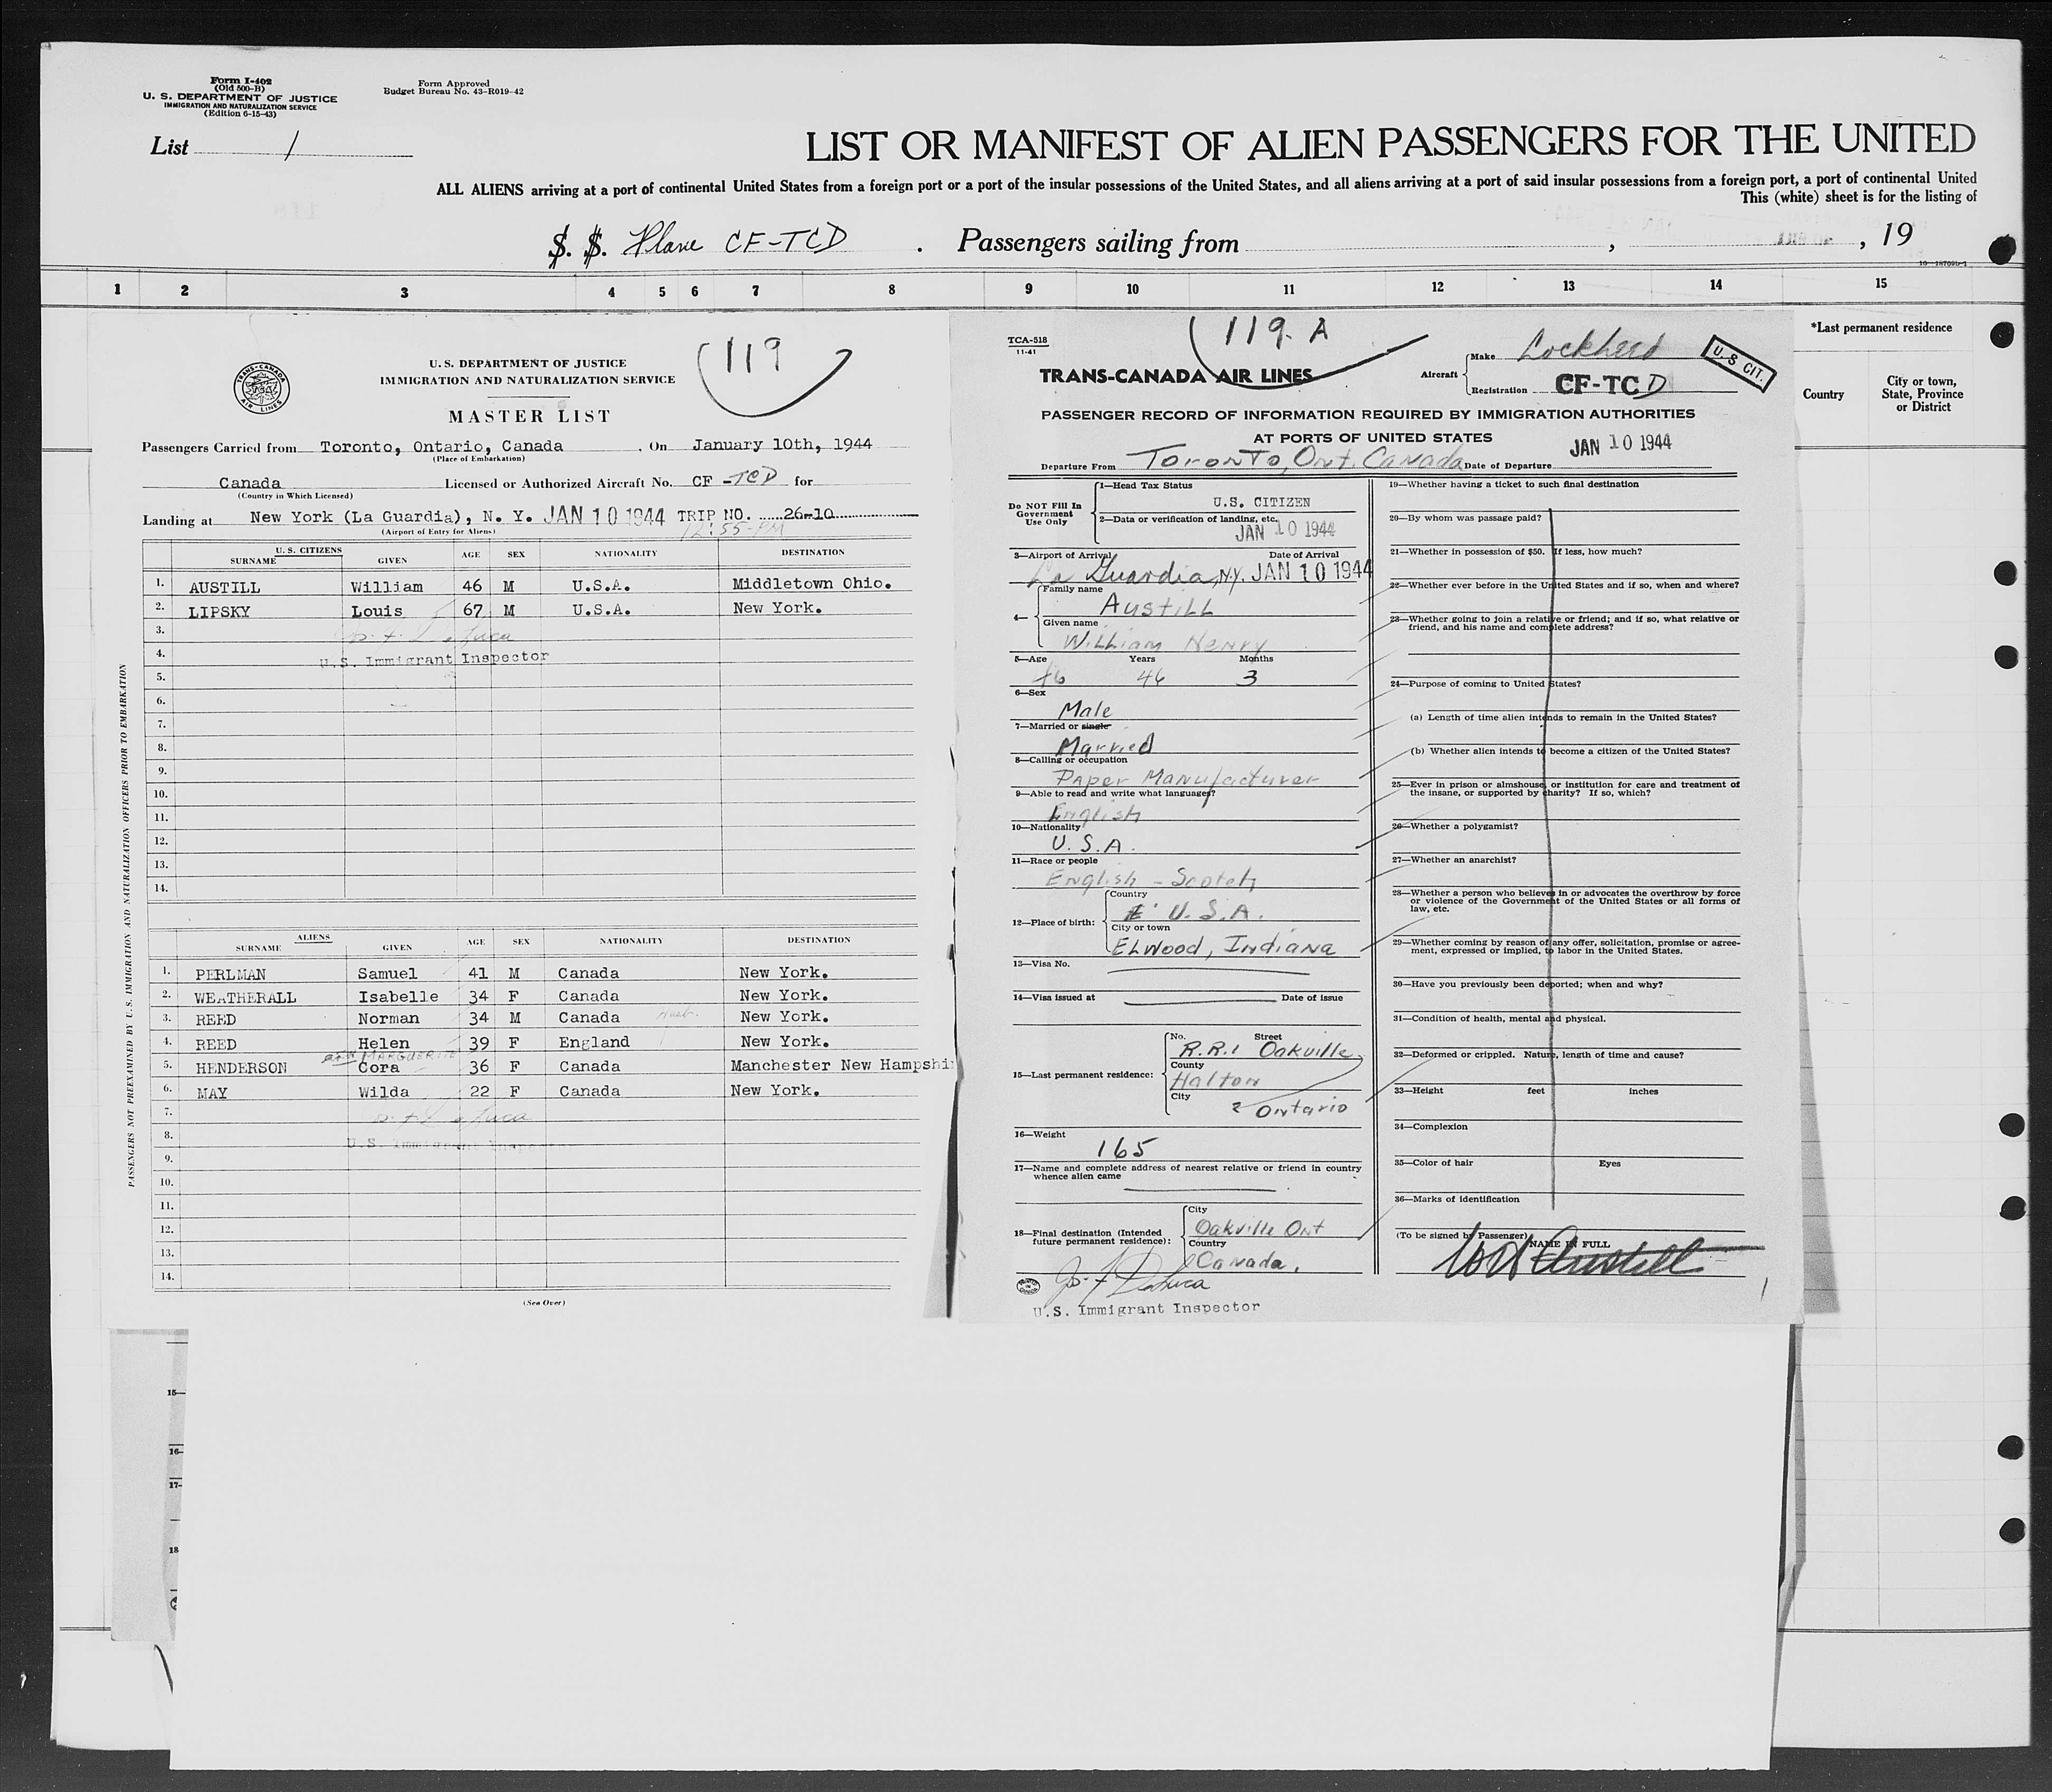 Form I-402
(Old 500-B)
U. S. DEPARTMENT OF JUSTICE
IMMIGRATION AND NATURALIZATION SERVICE
(Edition 6-15-43)
Form Approved
Budget Bureau No. 43-R019-42
List 1
LIST OR MANIFEST OF ALIEN PASSENGERS FOR THE UNITED
ALL ALIENS arriving at a port of continental United States from a foreign port or a port of the insular possessions of the United States, and all aliens arriving at a port of said insular possessions from a foreign port, a port of continental United
This (white) sheet is for the listing of
S. S. Plane CF-TCD . Passengers sailing from , , 19
1 2 3 4 5 6 7 8 9 10 11 12 13 14 15
*Last permanent residence
Country
City or town, State, Province or District
119
TRANS-CANADA AIR LINES
U.S. DEPARTMENT OF JUSTICE
IMMIGRATION AND NATURALIZATION SERVICE
MASTER LIST
Passengers Carried from Toronto, Ontario, Canada . On January 10th, 1944
(Place of Embarkation)
Canada Licensed or Authorized Aircraft No. CF -TCD for
(Country in Which Licensed)
Landing at New York (La Guardia), N. Y. JAN 10 1944 TRIP NO. 26-10
(Airport of Entry for Aliens) 12:55 PM
U. S. CITIZENS
SURNAME GIVEN AGE SEX NATIONALITY DESTINATION
1. AUSTILL William 46 M U.S.A. Middletown Ohio.
2. LIPSKY Louis 67 M U.S.A. New York.
3.
4. U.S. Immigrant Inspector
5.
6.
7.
8.
9.
10.
11.
12.
13.
14.
ALIENS
SURNAME GIVEN AGE SEX NATIONALITY DESTINATION
1. PERLMAN Samuel 41 M Canada New York.
2. WEATHERALL Isabelle 34 F Canada New York.
3. REED Norman 34 M Canada New York.
4. REED Helen 39 F England New York.
MARGUERITE
5. HENDERSON Cora 36 F Canada Manchester New Hampshi
6. MAY Wilda 22 F Canada New York.
7.
8. U.S. Immigrant Inspec
9.
10.
11.
12.
13.
14.
(See Over)
PASSENGERS NOT PREEXAMINED BY U.S. IMMIGRATION AND NATURALIZATION OFFICERS PRIOR TO EMBARKATION
15—
16—
17—
18
TCA-518
11-41
119 A
TRANS-CANADA AIR LINES
Aircraft
Make Lockheed
Registration CF-TCD
U.S CIT.
PASSENGER RECORD OF INFORMATION REQUIRED BY IMMIGRATION AUTHORITIES
AT PORTS OF UNITED STATES
Departure From Toronto, Ont. Canada Date of Departure JAN 10 1944
Do NOT Fill In Government Use Only
1—Head Tax Status
U.S. CITIZEN
2—Data or verification of landing, etc.
JAN 10 1944
3—Airport of Arrival Date of Arrival
La Guardia, N.Y. JAN 10 1944
4—
Family name
Austill
Given name
William Henry
5—Age Years Months
46 46 3
6—Sex
Male
7—Married or single
Married
8—Calling or occupation
Paper Manufacturer
9—Able to read and write what languages?
English
10—Nationality
U.S.A.
11—Race or people
English - Scotch
12—Place of birth:
Country
U.S.A.
City or town
Elwood, Indiana
13—Visa No.
14—Visa issued at Date of issue
15—Last permanent residence:
No. Street
R.R.1 Oakville
County
Halton
City
Ontario
16—Weight
165
17—Name and complete address of nearest relative or friend in country whence alien came
18—Final destination (Intended future permanent residence):
City
Oakville Ont
Country
Canada.
U.S. Immigrant Inspector
19—Whether having a ticket to such final destination
20—By whom was passage paid?
21—Whether in possession of $50. If less, how much?
22—Whether ever before in the United States and if so, when and where?
23—Whether going to join a relative or friend; and if so, what relative or
friend, and his name and complete address?
24—Purpose of coming to United States?
(a) Length of time alien intends to remain in the United States?
(b) Whether alien intends to become a citizen of the United States?
25—Ever in prison or almshouse, or institution for care and treatment of
the insane, or supported by charity? If so, which?
26—Whether a polygamist?
27—Whether an anarchist?
28—Whether a person who believes in or advocates the overthrow by force
or violence of the Government of the United States or all forms of
law, etc.
29—Whether coming by reason of any offer, solicitation, promise or agree-
ment, expressed or implied, to labor in the United States.
30—Have you previously been deported; when and why?
31—Condition of health, mental and physical.
32—Deformed or crippled. Nature, length of time and cause?
33—Height feet inches
34—Complexion
35—Color of hair Eyes
36—Marks of identification
(To be signed by Passenger)
NAME IN FULL
W H Austill